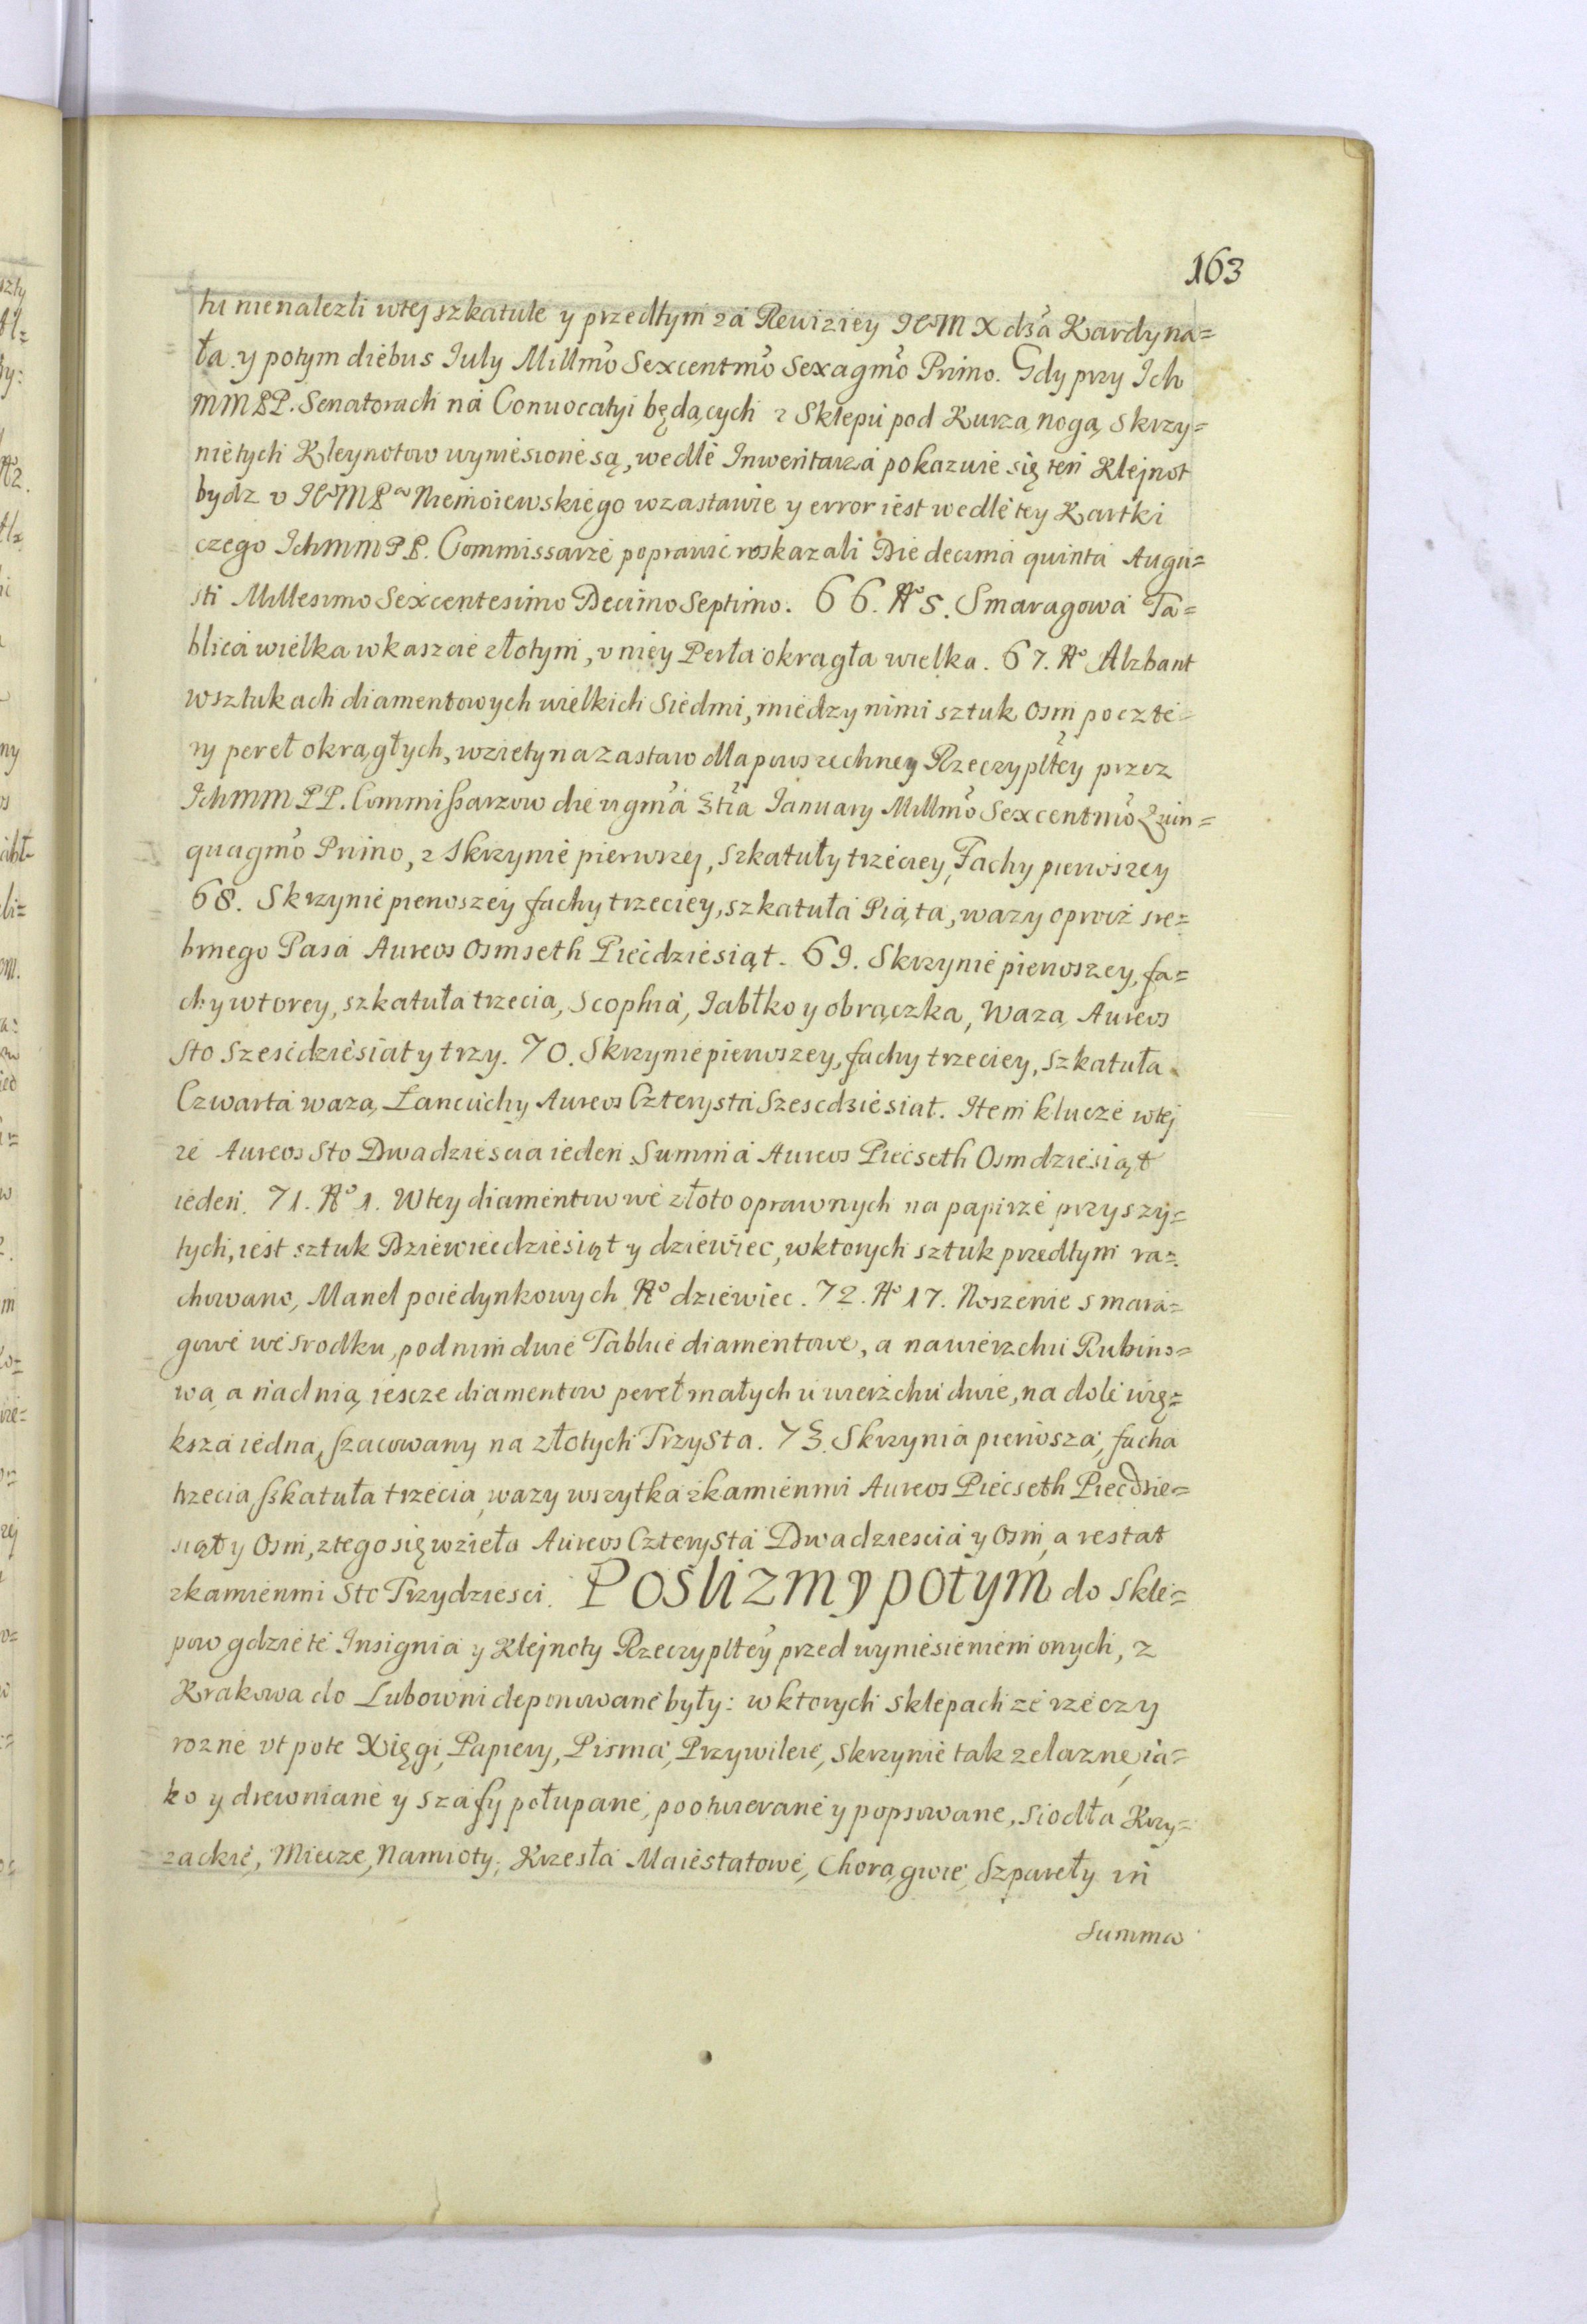 163
tu nienalezli wtej szkatule y przedtym za Rewiziey JeoM Xdza Kardyna=
ła y potym diebus July Millmo Sexcentmo Sexagmo Primo. Gdy przy Ich
MM PP. Senatorach na Conuocatyi będących z Sklepu pod Kurzą nogą skrzy=
nietych Kleynotow wyniesione są, wedle Inwentarza pokazuie się ten Klejnot
bydz v JeoMPa Niemoiewskiego wzastawie y error iest wedle tey Kartki
czego IchMM PP. Commissarze poprawić roskazali Die decima quinta Augu=
sti Millesimo Sexcentesimo Decimo Septimo. 66. No 5. Smaragowa Ta=
blica wielka wkaszcie złotym, v niey Perła okrągła wielka. 67. No Alzbant
wsztukach diamentowych wielkich siedmi, miedzy nimi sztuk osm po czte=
ry pereł okrągłych, wziety na zastaw dla powszechney Rzeczypltey przez
IchMM PP. Commissarzow die vigma 3tia January Millmo Sexcentmo Quin=
quagmo Primo, z Skrzynie pierwszej, szkatuły trzeciey, Fachy pierwszey
68. Skrzynie pierwszey fachy trzeciey, szkatuła Piąta, wazy oprocz sre=
brnego Pasa Aureos Osmseth Piećdziesiąt. 69. Skrzynie pierwszey, fa=
chy wtorey, szkatuła trzecia, Scophia, Jabłko y obrączka, Wazą Aureos
Sto Szescdziesiat y trzy. 70. Skrzynie pierwszey, fachy trzeciey, szkatuła
Czwarta wazą Łancuchy Aureos Czterysta Szescdziesiat. Item klucze wtej
ze Aureos Sto Dwadziescia ieden Summa Aureos Piećseth Osmdziesiąt
ieden. 71. No 1. Wtey diamentow we złoto oprawnych na papirze przyszy=
tych, iest sztuk Dziewiecdziesiąt y dziewiec, wktorych sztuk przedtym ra=
chowano, Manel poiedynkowych No dziewiec. 72. No 17. Noszenie smara=
gowe we srodku, pod nim dwie Tablice diamentowe, a nawierzchu Rubino=
wa, a nad nią iescze diamentow pereł małych u wierzchu dwie, na dole wię=
ksza iedna, szacowany na złotych Trzysta. 73. Skrzynia pierwsza, facha
trzecia, szkatuła trzecia wazy wszytka zkamienmi Aureos Piećseth Piecdzie=
siąt y Osm, ztego się wzieła Aureos Czterysta Dwadziescia y Osm, a restat
zkamienmi Sto Trzydziesci. Poslizmy potym do skle=
pow gdzie te Insignia y Klejnoty Rzeczypltey przed wyniesieniem onych, z
Krakowa do Lubowni deponowane były: w ktorych sklepach ze rzeczy
rozne vt pote Xięgi, Papiery, Pisma, Przywileie, skrzynie tak zelazne, ia=
ko y drewniane y szafy połupane, pootwierane y popsowane, siodła Krzy=
zackie, Miecze, Namioty, Krzesła Maiestatowe, Chorągwie, Szparety in
summa